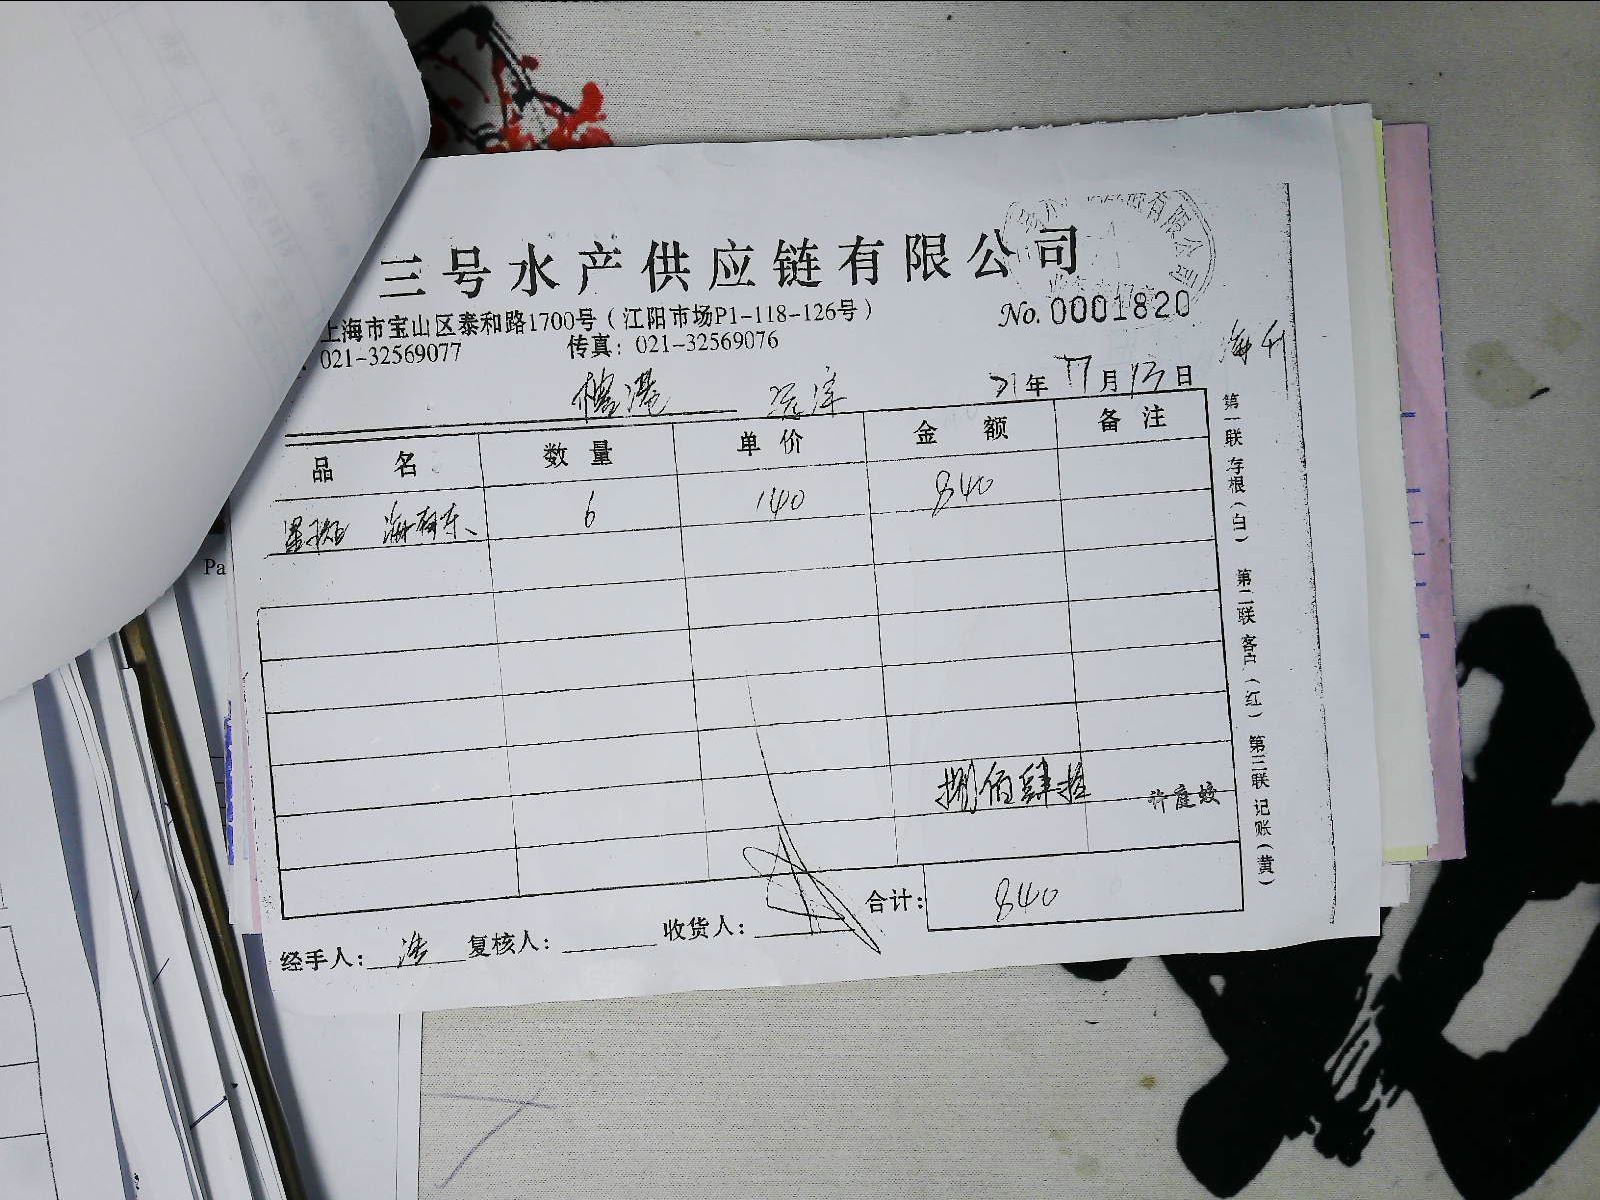 三号水产供应链有限公司
No. 0001820
上海市宝山区泰和路1700号（江阳市场P1-118-126号）
021-32569077 传真：021-32569076
21年 11月13日
品 名 数 量 单 价 金 额 备 注
6 140 840
捌佰肆拾
许庭蛟
合计： 840
经手人：浩 复核人： 收货人：
第一联 存根（白） 第二联 客户（红） 第三联 记账（黄）
有限公司
Pa